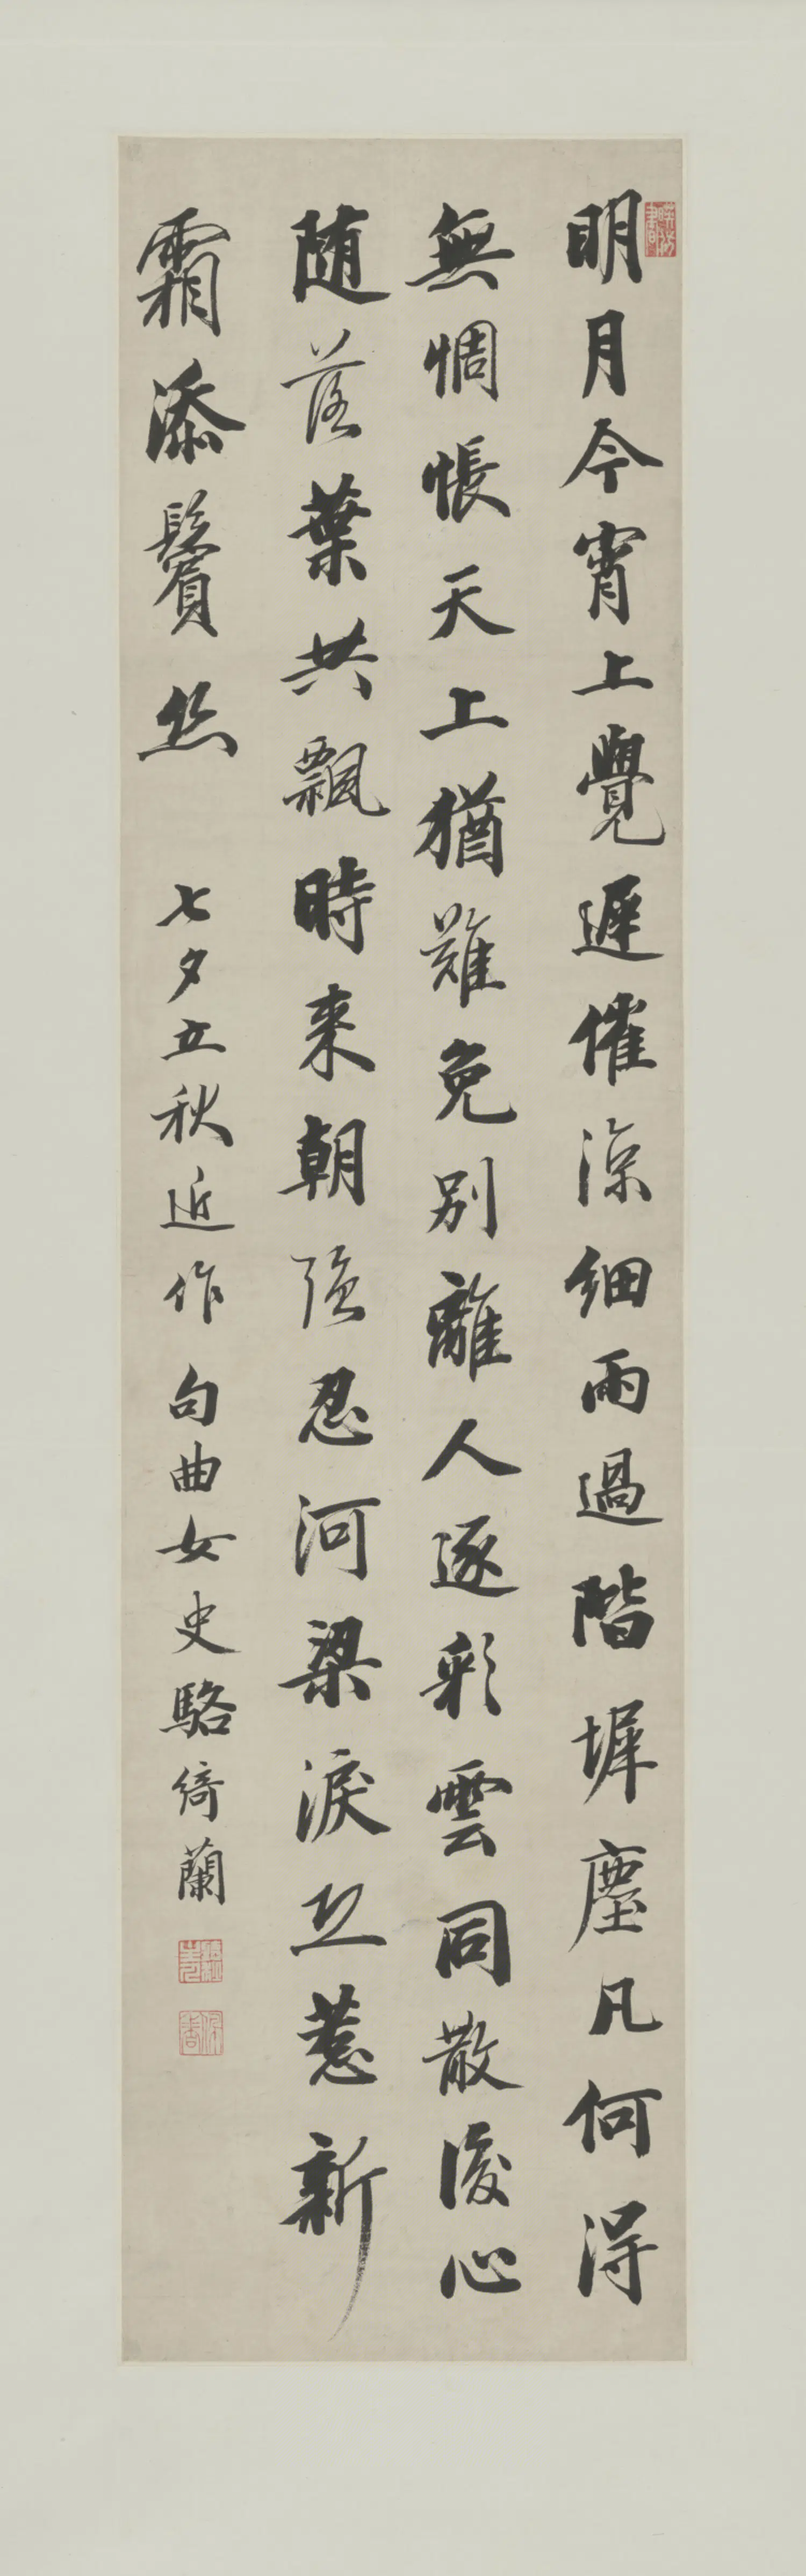 明月今宵上覺遲催涼細雨過階墀塵凡何得
無惆悵天上猶難免別離人逐彩雲同散後心
随落葉共飄時来朝强忍河梁淚又惹新
霜添鬢絲
七夕立秋近作 句曲女史駱綺蘭